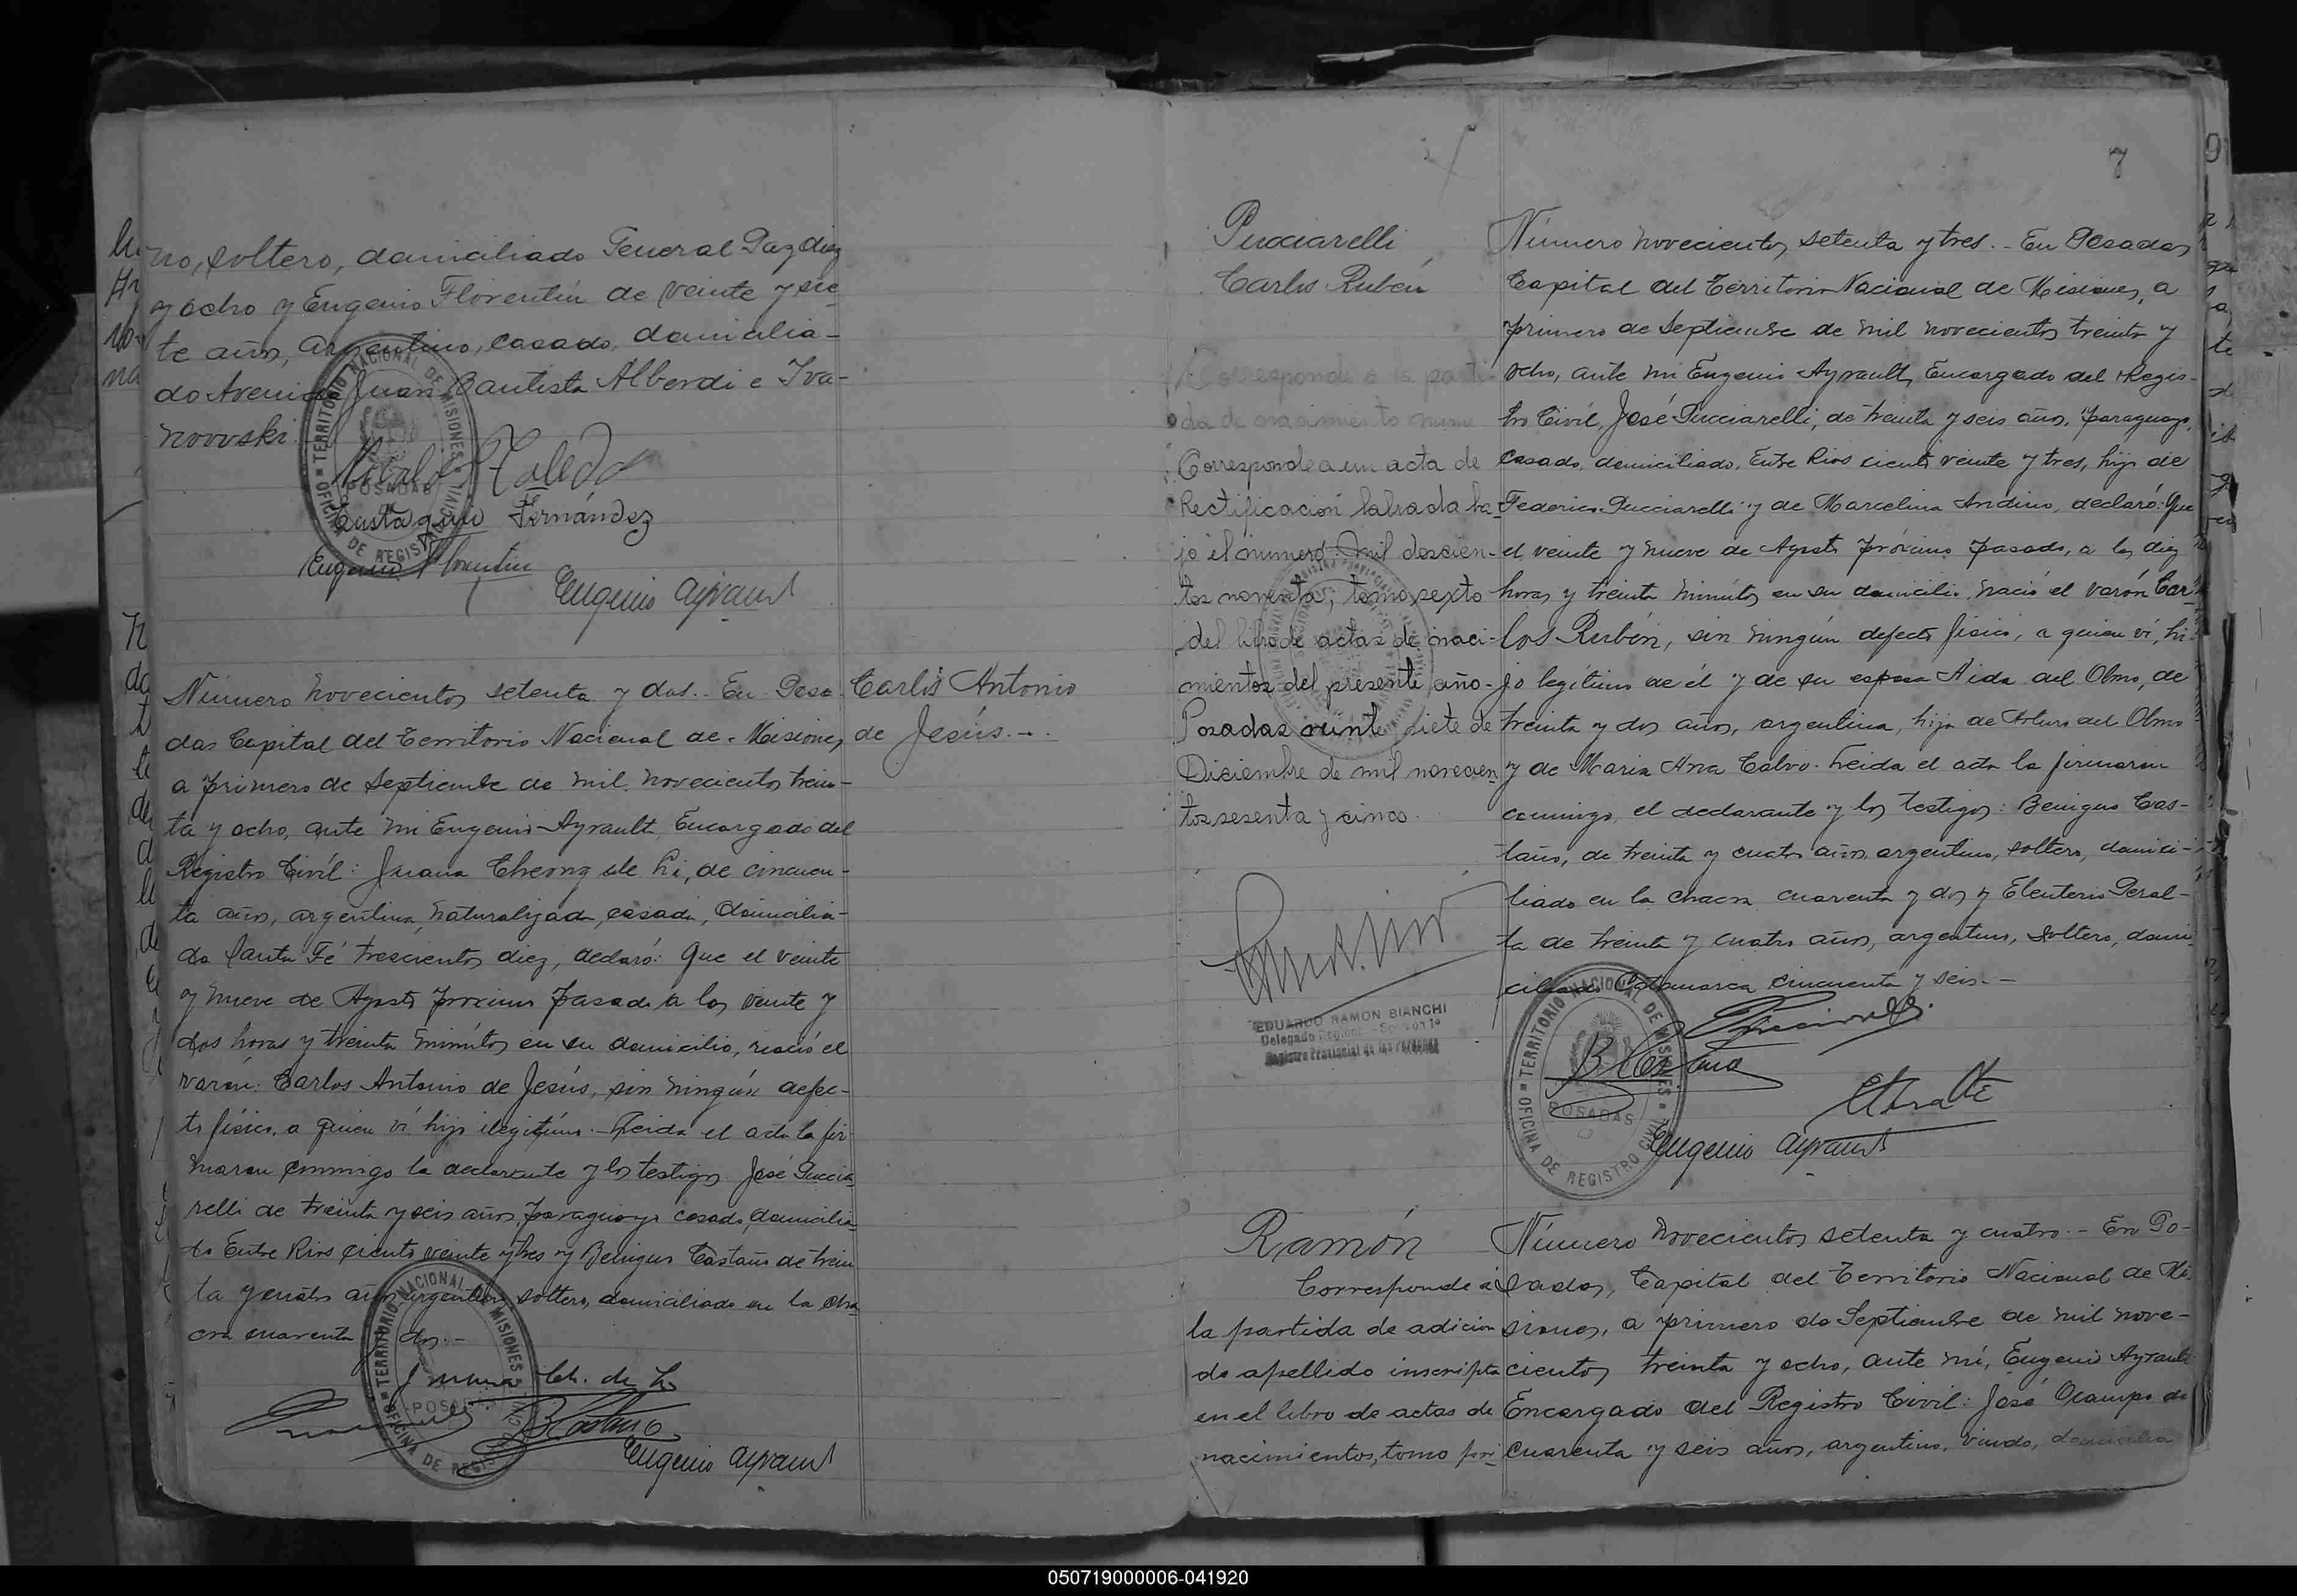 no, soltero, domiciliado General Paz diez
y ocho y Eugenio Florentín de veinte y sie-
te años, argentino, casado, domicilia-
do Avenida Juan Bautista Alberdi e Iva-
novski.
TERRITORIO NACIONAL DE MISIONES
OFICINA DE REGISTRO CIVIL
POSADAS
Toledo
Eustaquio Fernández
Eugenio Florentin
Eugenio Ayrault
Número novecientos setenta y dos.- En Posa-
das Capital del Territorio Nacional de Misiones
a primero de Septiembre de mil novecientos trein-
ta y ocho, ante mi Eugenio Ayrault Encargado del
Registro Civíl: Juana Cheong de Li, de cincuen-
ta años, argentina, naturalizada, casada, domicilia-
da Santa Fé trescientos diez, declaró: Que el veinte
y nueve de Agosto próximo pasado a las veinte y
dos horas y treinta minútos en su domicilio, nació el
varón: Carlos Antonio de Jesús, sin ningún defec-
to físico, a quien ví hijo ilegítimo.- Leida el acta la fir-
maron conmigo la declarante y los testigos José Puccia-
relli de treinta y seis años, paraguayo casado, domicilia-
do Entre Rios ciento veinte y tres y Benigno Castaño de trein
ta y cuatro años argentino, soltero, domiciliado en la cha
cra cuarenta y dos.-
Carlos Antonio
de Jesús.-
TERRITORIO NACIONAL DE MISIONES
OFICINA DE REGISTRO CIVIL
POSADAS
Juana Ch. de Li
B Castaño
Eugenio Ayrault
7
Pucciarelli
Carlos Rubén
Corresponde a la parti-
da de nacimiento nume
Corresponde a un acta de
Rectificación labrada ba-
jo el número: mil doscien-
tos noventa, tomo sexto
del libro de actas de naci-
mientos del presente año-
Posadas veinte siete de
Diciembre de mil novecien
tos sesenta y cinco.
EDUARDO RAMON BIANCHI
Delegado
Registro Provincial de las Personas
Número novecientos setenta y tres.- En Posadas
Capital del Territorio Nacional de Misiones, a
primero de Septiembre de mil novecientos treinta y
ocho, ante mi Eugenio Ayrault, Encargado del Regis-
tro Civíl, José Pucciarelli, de treinta y seis años, paraguayo,
casado, domiciliado, Entre Rios ciento veinte y tres, hijo de
Federico Pucciarelli y de Marcelina Andino, declaró: Que
el veinte y nueve de Agosto próximo pasado, a las diez
horas y treinta minútos en su domicilio nació el varón Car-
los Rubén, sin ningún defecto físico, a quien ví, hi-
jo legítimo de él y de su esposa Aida del Olmo, de
treinta y dos años, argentina, hija de Arturo del Olmo
y de Maria Ana Calvo. Leida el acta la firmaron
conmigo, el declarante y los testigos: Benigno Cas-
taño, de treinta y cuatro años, argentino, soltero, domici-
liado en la chacra cuarenta y dos y Eleuterio Peral-
ta de treinta y cuatro años, argentino, soltero, domi-
ciliado Catamarca cincuenta y seis.-
TERRITORIO NACIONAL DE MISIONES
OFICINA DE REGISTRO CIVIL
POSADAS
Pucciarelli
B Castaño
Eugenio Ayrault
Ramón
Corresponde á
la partida de adicion
de apellido inscripta
en el libro de actas de
nacimientos, tomo pri
Número novecientos setenta y cuatro.- En Po-
sadas, Capital del Territorio Nacional de Mi-
siones, a primero de Septiembre de mil nove-
cientos treinta y ocho, ante mí, Eugenio Ayrault
Encargado del Registro Civil: José Ocampo de
cuarenta y seis años, argentino, viudo, domicilia
050719000006-041920